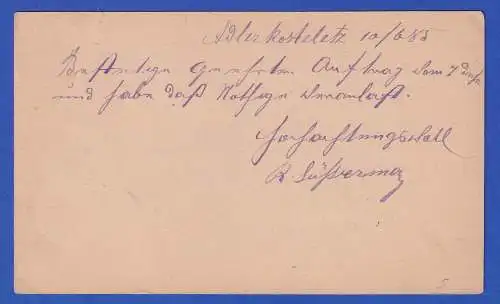 Adlerkosteletz 10/6 85
Bestätige geehrten Auftrag vom 7 dieß
und habe daß Nöthige veranlaßt.
Hochachtungsvoll